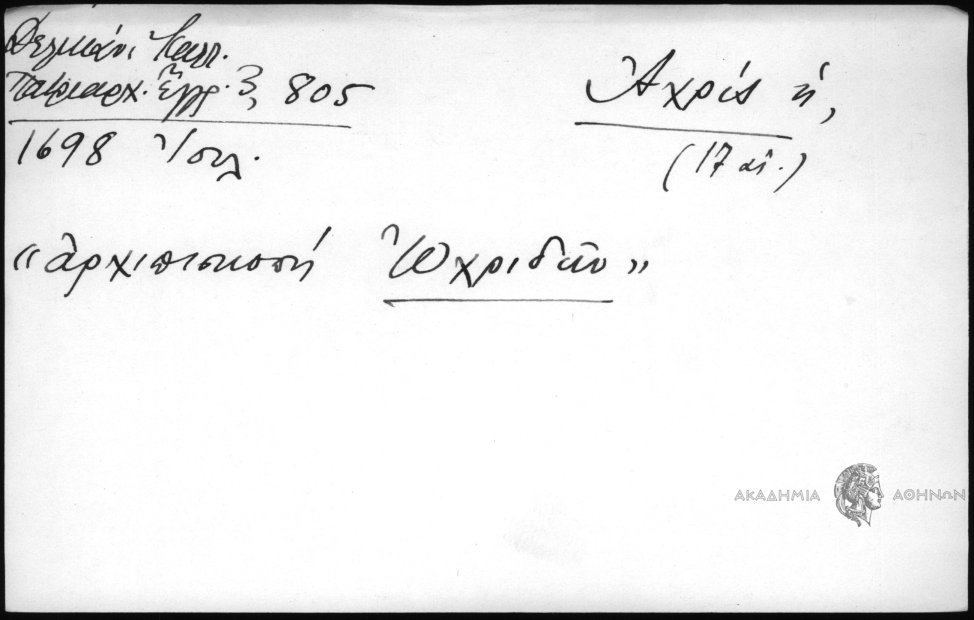 Δελικάνι Καλλ.
Πατριαρχ. Ἔγγρ. 3, 805
Ἀχρίς ἡ,
1698 Ἰουλ.
(17 αἰ.)
«ἀρχιεπισκοπή Ὠχριδῶν»
ΑΚΑΔΗΜΙΑ ΑΘΗΝΩΝ